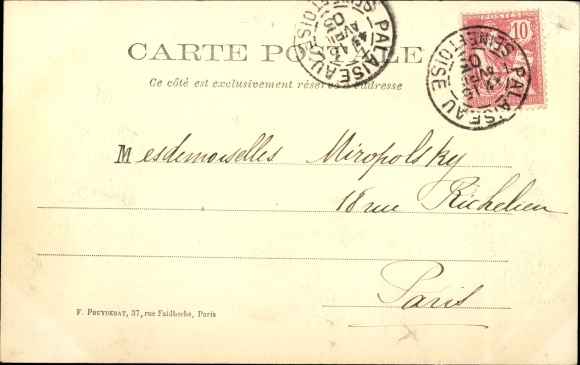 POSTES
10
CARTE POSTALE
PALAISEAU
SEINE-ET-OISE
PALAISEAU
SEINE-ET-OISE
Ce côté est exclusivement réservé à l'adresse
Mesdemoiselles Miropolsky
18 rue Richelieu
Paris
F. POUYDEBAT, 37, rue Faidherbe, Paris